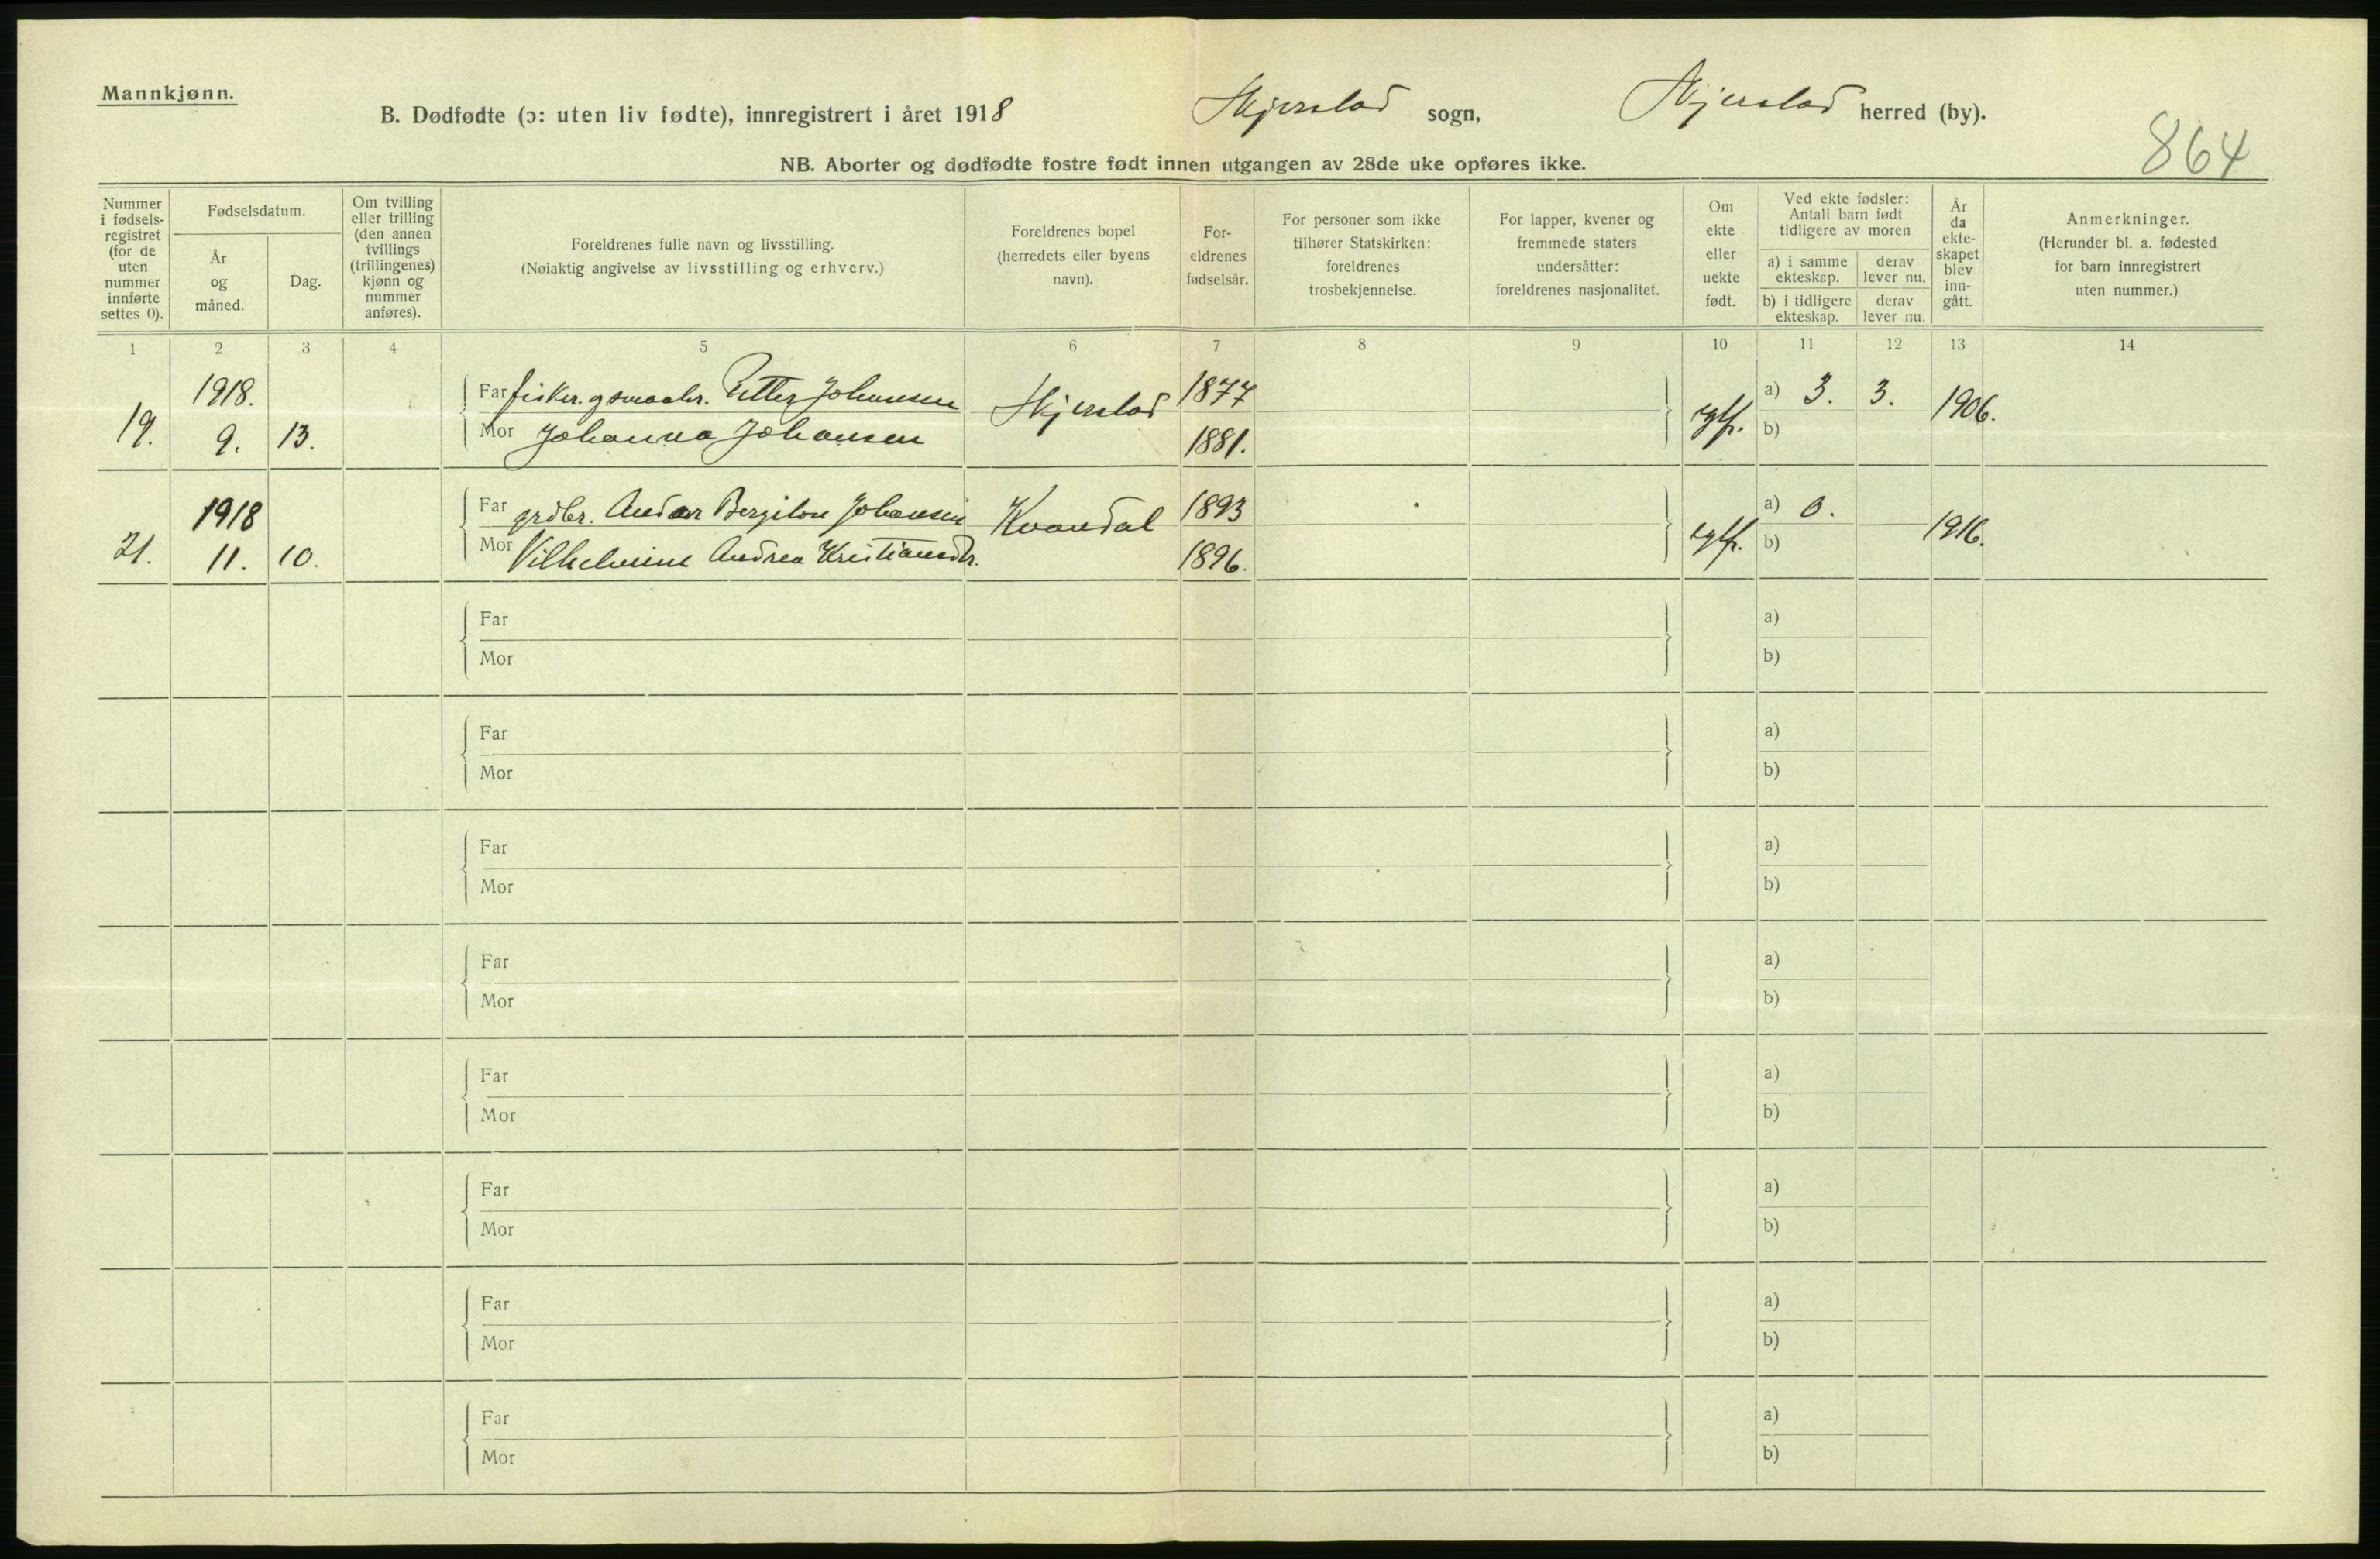 Mannkjønn.
B. Dødfødte (ɔ: uten liv fødte), innregistrert i året 1918 Skjerstad sogn, Skjerstad herred (by).
864
NB. Aborter og dødfødte fostre født innen utgangen av 28de uke opføres ikke.
Nummer i fødsels-registret (for de uten nummer innførte settes 0).
Fødselsdatum.
År og måned.
Dag.
Om tvilling eller trilling (den annen tvillings (trillingenes) kjønn og nummer anføres).
Foreldrenes fulle navn og livsstilling.
(Nøiaktig angivelse av livsstilling og erhverv.)
Foreldrenes bopel (herredets eller byens navn).
For-eldrenes fødselsår.
For personer som ikke tilhører Statskirken: foreldrenes trosbekjennelse.
For lapper, kvener og fremmede staters undersåtter: foreldrenes nasjonalitet.
Om ekte eller uekte født.
Ved ekte fødsler: Antall barn født tidligere av moren
a) i samme ekteskap. derav lever nu.
b) i tidligere ekteskap. derav lever nu.
År da ekte-skapet blev inn-gått.
Anmerkninger.
(Herunder bl. a. fødested for barn innregistrert uten nummer.)
1 2 3 4 5 6 7 8 9 10 11 12 13 14
19. 1918. 9. 13. Far fisker. og smaabr. Petter Johansen Skjerstad 1877 egtf. a) 3. 3. 1906.
Mor Johanna Johansen 1881. b)
21. 1918 11. 10. Far grdbr. Andor Bergiton Johansen Kvandal 1893 egtf. a) 0. 1916.
Mor Vilhelmine Andrea Kristiansdtr. 1896. b)
Far a)
Mor b)
Far a)
Mor b)
Far a)
Mor b)
Far a)
Mor b)
Far a)
Mor b)
Far a)
Mor b)
Far a)
Mor b)
Far a)
Mor b)